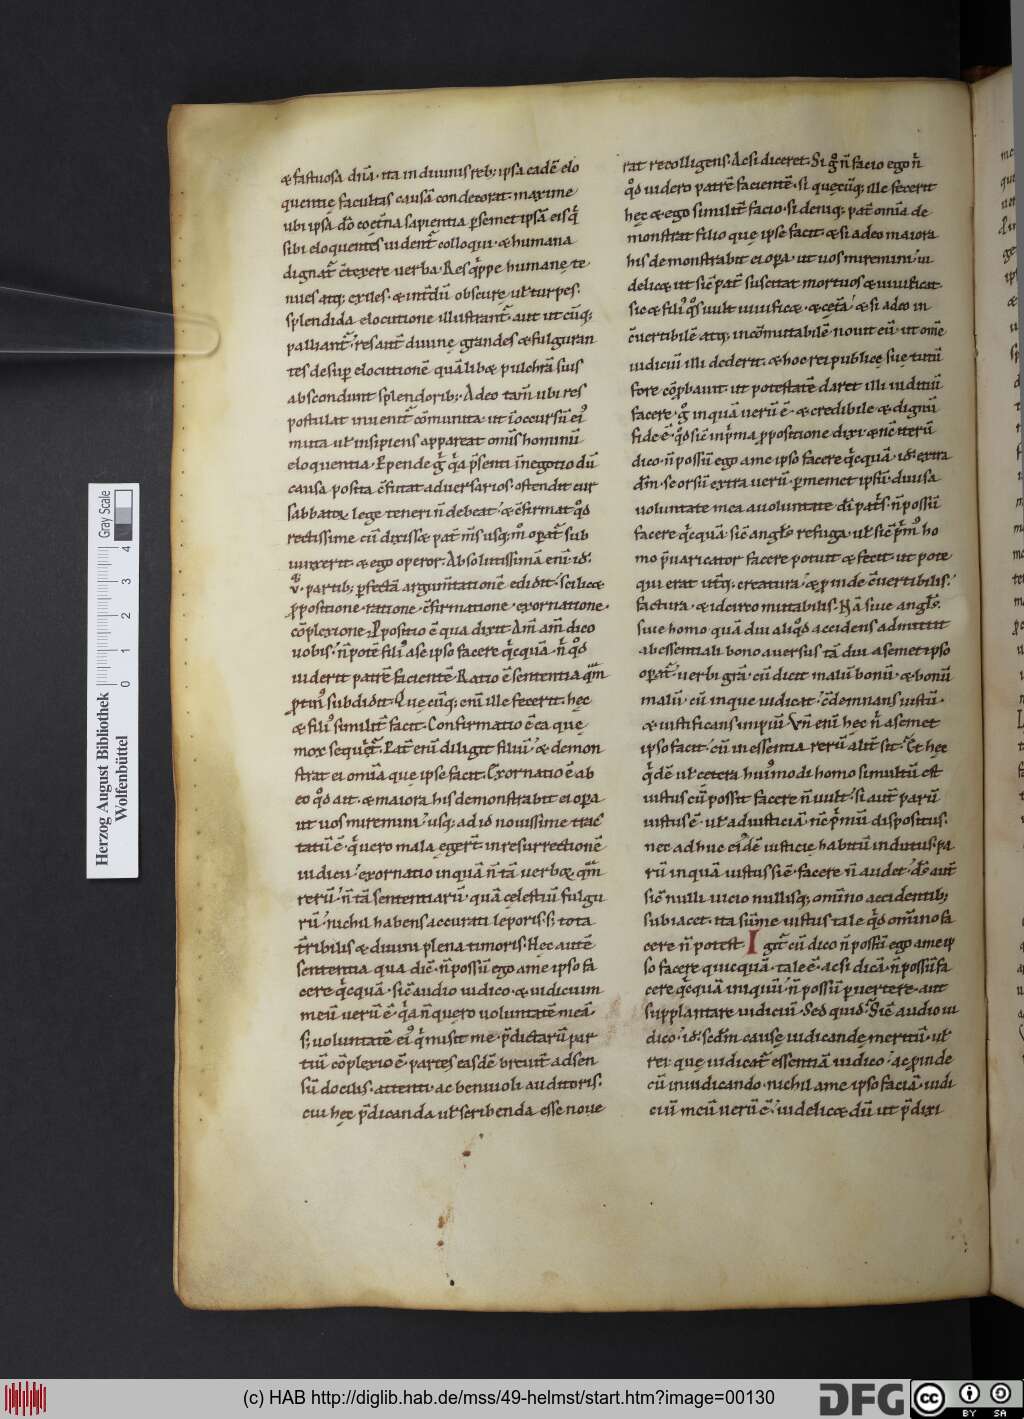 & fastuosa dñã· ita in diuinis reb; ipsa cadẽ elo
quentię facultas causã condecorat· maxime
ubi ipsa dõ coęt̃na sapientia p̱semet ipsã eisq̃
sibi eloquentes uident̃ colloqui· & humana
dignat̃ c̃texere uerba· Res q̃ppe humanę te
nues atq; exiles· & int̃dũ obscurę uł turpes·
splendida elocutione illustrant̃· aut utcũq;
palliant̃· res aut̃ diuinę grandes & fulguran
tes desup̱ elocutionẽ quãlib& pulchrã suis
abscondunt splendorib;· Adeo tam̃ ubi res
postulat inuenit̃ cõmunita· ut ĩ occursũ ei9
muta uł insipiens appareat om̃is hominũ
eloquentia· Epende g̃ q̃a p̃senti ĩnegotio dũ
causa posita c̃futat aduersarios· ostendit cur
sabbatoꝝ lege teneri ñ debeat· & c̃firmat q̊d
rectissime cũ dixiss& pat̃ m̃s usq; m̊ op̱at̃ sub
iunxerit & ego operor· Absolutissimã eni̅ ·id·
v· partib; p̱fectã argum̃tationẽ edidit· scilic&
p̱positione· ratione· c̃firmatione· exornatione·
cõplexione· P̱positio ẽ qua dixit· Am̃ am̃ dico
uobis· ñ potẽ fili9 a se ipso facere q̃cquã· ñ q̊d
uiderit patrẽ facientẽ· Ratio ẽ sententia quã
p̱tin9 subdidit· Quęcũq; eni̅ ille fecerit· hęc
& fili9 similit̃ facit· Confirmatio ẽ ea quę
mox sequet̃· Pat̃ eni̅ diligit filiũ· & demon
strat ei omĩa quę ipse facit· Exornatio ẽ ab
eo q̊d ait· & maiora his demonstrabit ei op̱a
ut uos miremini· usq; ad id nouissime trac
tatũ ẽ· q̃ uero mala egert̃ in resurrectionẽ
iudicii· exornatio inquã ñ tã uerb& quã
rerũ· ñ tã sententiarũ· quã cęlestiũ fulgu
rũ· nichil habens accurati leporis· s; tota
t̃ribilis & diuini plena timoris· Hęc autẽ
sententia qua diĉ· ñ possũ ego a me ipso fa
cere q̃cquã· sic̃ audio iudico· & iudicium
meũ uerũ ẽ· q̃a ñ quero uoluntatẽ meã·
s; uoluntatẽ ei9 q̃ misit me· p̃dictarũ par
tiũ cõplexio ẽ· partes easdẽ breuit̃ ad sen
sũ docilis· attenti· ac beniuoli auditoris·
cui hęc p̃dicanda uł scribenda esse noue
rat recolligens· Ac si diceret· Si g̊ ñ facio ego ñ
q̊d uidero patrẽ facientẽ· si quęcũq; ille fecerit
hęc & ego similit̃ facio· si deniq; pat̃ omĩa de
monstrat filio quę ipse facit· & si adeo maiora
his demonstrabit ei op̱a· ut uos miremini· ui
delic& ut sic̃ pat̃ suscitat mortuos & uiuificat·
sic & fili9 q̊s uult uiuific&· & cet̃a· & si adeo in
c̃uertibilẽ atq; incõmutabilẽ nouit eũ· ut om̃e
iudiciũ illi dederit· & hoc rei publicę suę tutũ
fore cõp̱bauit· ut potestatẽ daret illi iuditiũ
facere· g̊ inquã uerũ ẽ· & credibile & dignũ
fide ẽ· q̊d sic̃ in p̃ma p̱positione dixi· & nc̃ iterũ
dico· ñ possũ ego a me ipso facere q̃cquã· id· extra
dm̃· seorsũ extra uerũ· p̱memet ipsũ· diuisa
uoluntate mea a uoluntate dĩ pat̃s· ñ possũ
facere q̃cquã· sic̃ angłs refuga· uł sic̃ p̃m9 ho
mo p̃uaricator facere potuit & fecit· ut pote
qui erat ut̃q; creatura· & p̱inde c̃uertibilis·
factura· & idcirco mutabilis· Nã siue angłs·
siue homo quãdiu aliq̊d accidens admittit
ab essentiali bono auersus tãdiu a semet ipso
op̱at̃· uerbi grã· cũ dicit malũ bonũ· & bonũ
malũ· cũ inque iudicat· c̃demnans iustũ·
& iustificans impiũ· Vñ eni̅ hęc ñ a semet
ipso facit· cũ in essentia rerũ alit̃ sit· Et hęc
q̃dẽ uł cetera hui9modi homo si multũ est
iustus cũ possit facere ñ uult· si aut̃ parũ
iustus ẽ· uł ad iusticiã· ñẽ p̃miũ dispositus·
nec adhuc ei9dẽ iusticię habitũ indutus· pa
rũ inquã iustus si ẽ· facere ñ audet· d̃s aut̃
sic̃ nulli uicio nullisq; omñino accidentib;
subiacet· ita sũme iustus tale q̊d omñino fa
cere ñ potest· Igit̃ cũ dico ñ possũ ego a me ip
so facere quicquã· tale ẽ· ac si dicã· ñ possũ fa
cere q̃cquã iniquũ· ñ possũ p̱uertere· aut
supplantare iudiciũ· Sed quid· Sic̃ audio iu
dico· id· scdm̃ causę iudicandę meritũ· uł
rei quę iudicat̃ essentiã iudico· ac p̱inde
cũ in iudicando· nichil a me ipso faciã· iudi
ciũ meũ uerũ ẽ· uidelic& dũ ut p̃dixi
Herzog August Bibliothek
Wolfenbüttel
0 1 2 3 4
Gray Scale
(c) HAB http://diglib.hab.de/mss/49-helmst/start.htm?image=00130
DFG
cc BY SA